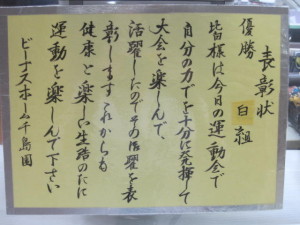 表彰状
優勝 白組
皆様は今日の運動会で
自分の力を十分に発揮して
大会を楽しんで、
活躍したのでその活躍を表
彰しますこれからも
健康と楽しい生活のために
運動を楽しんで下さい
ビーナスホーム千鳥園